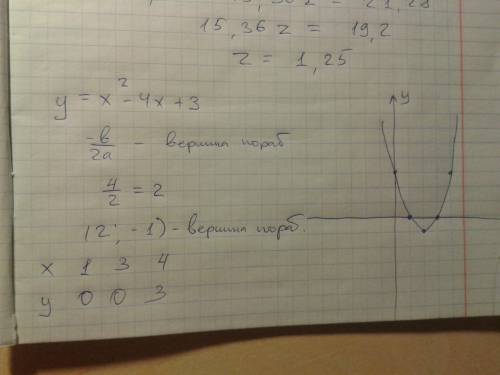 15,36 z = 19,2
z = 1,25
y = x² - 4x + 3
-b/2a - вершина пораб
4/2 = 2
(2; -1) - вершина пораб.
x 1 3 4
y 0 0 3
y